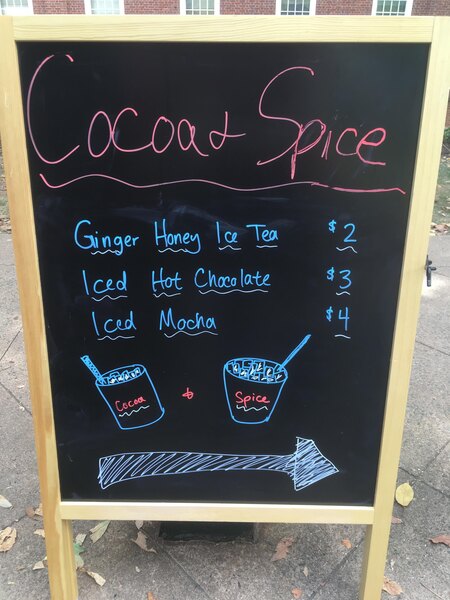 Cocoa & Spice
Ginger Honey Ice Tea $2
Iced Hot Chocolate $3
Iced Mocha $4
Cocoa & Spice